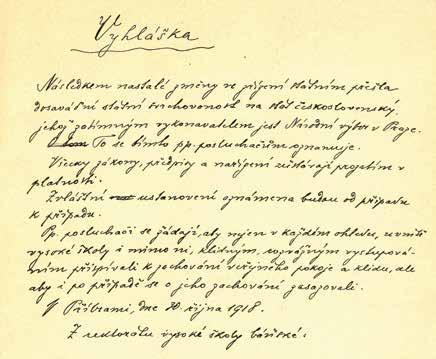 Vyhláška
Následkem nastalé změny ve zřízení státním přešla
dosavadní státní svrchovanost na stát československý,
jehož zatímným vykonavatelem jest Národní výbor v Praze.
To se tímto pp. posluchačům oznamuje.
Všecky zákony, předpisy a nařízení zůstávají prozatím v
platnosti.
Zvláštní ustanovení oznámena budou od případu
k případu.
Pp. posluchači se žádají, aby nejen v každém ohledu, uvnitř
vysoké školy i mimo ni, klidným, rozvážným vystupová-
ním přispívali k zachování veřejného pokoje a klidu, ale
aby i po případě se o jeho zachování zasazovali.
V Příbrami, dne 30. října 1918.
Z rektorátu vysoké školy báňské.